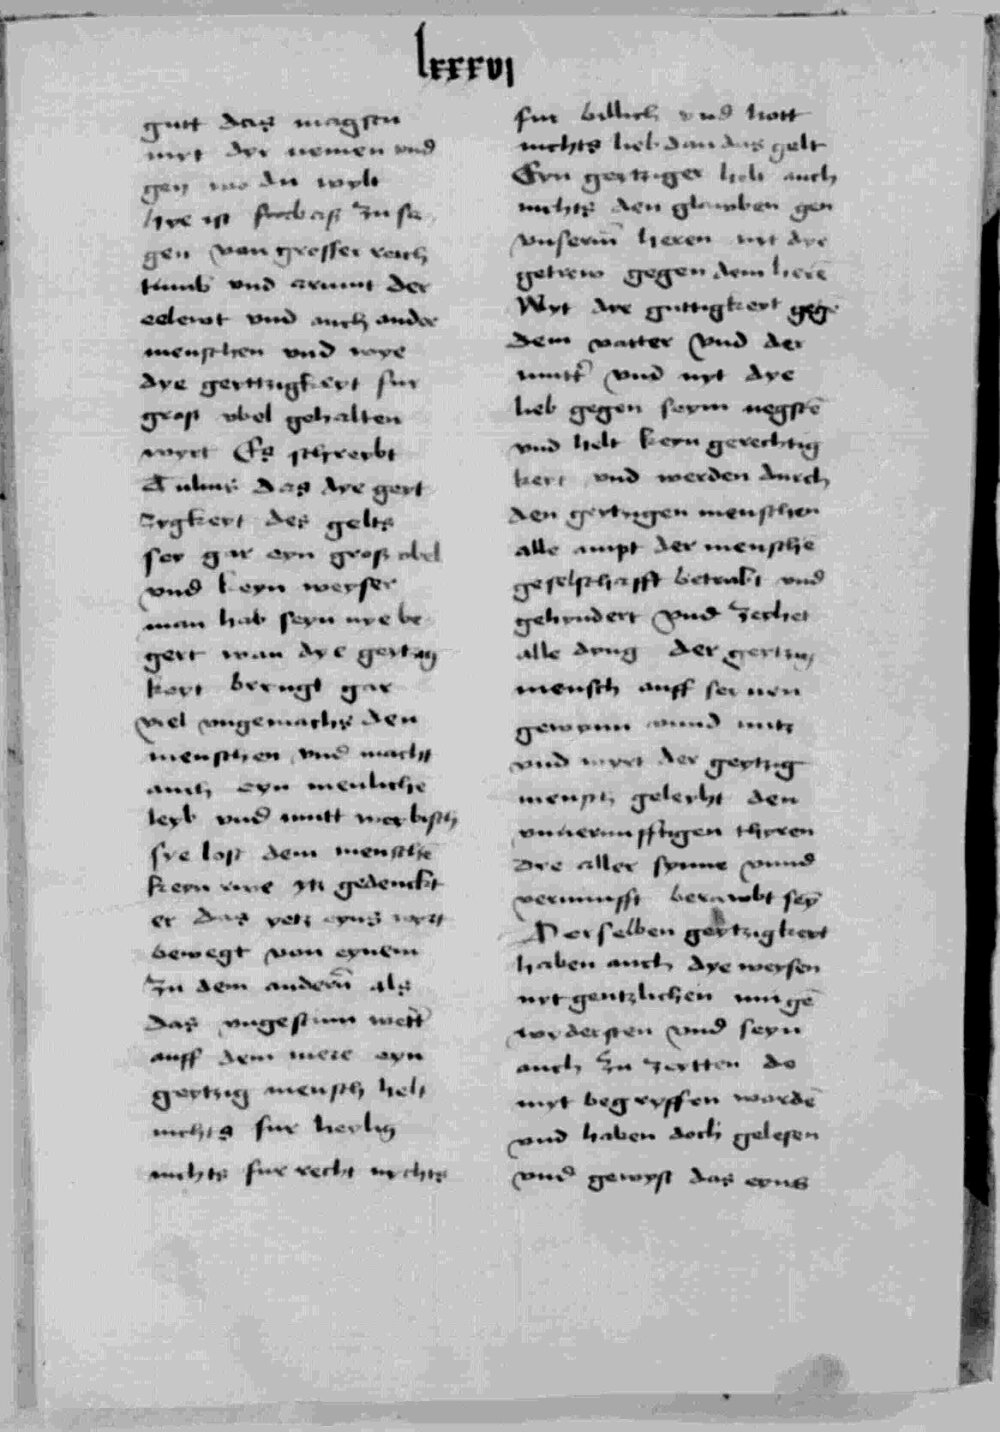 lxxxvj
gutt das magstu
myt dyr nemen vnd
gen wo du wylt
hye ist furbas zu sa
gen von grosser reich
tumb vnd armut der
eelewt vnd auch ander
menschen vnd wye
dye geyttzigkeyt fur
gross vbel gehalten
wyrt Es schreybt
Tulius das dye geyt
zygkeyt des gelts
sey gar eyn gross vbel
vnd keyn weyser
man hab seyn nye be
gert wan dye geytzig
keyt brengt gar
viel vngemachs den
menschen vnd macht
auch eyn menliche
leyb vnd mutt weybisch
sye lost dem menschē
keyn rwe ytz gedenckt
er das yetz eyns wyrt
bewegt von eynem
zu dem andern̄ als
das vngestum wett̄
auff dem mere eyn
geytzig mensch helt
nichts fur heylig
nichts fur recht nychts
fur billich vnd hott
nichts lieb dan das gelt
Eyn geytziger helt auch
nichts den glawben gen
vnserm̄ heren nyt dye
getrew gegen dem herē
Nyt dye guttigkeyt gegē
dem vatter vnd der
mutt̄ vnd nyt dye
lieb gegen seym negstē
vnd helt keyn gerechtig
keyt vnd werden durch
den geytzigen menschen
alle ampt der menschē
geselschafft betrubt vnd
gehyndert vnd zeyhet
alle dyng der geytzig
mensch auff seynen
gewynn vnnd nutz
vnd wyrt der geytzig
mensch geleyht den
vnuernufftigen thyren
dye aller synne vnnd
vernunfft berawbt seȳ
Derselben geytzigkeyt
haben auch dye weysen
nyt gentzlichen mugē
wydersten vnd seyn
auch zu zeytten do
myt begryffen wordē
vnd haben doch gelesen
vnd gewyst das eyns